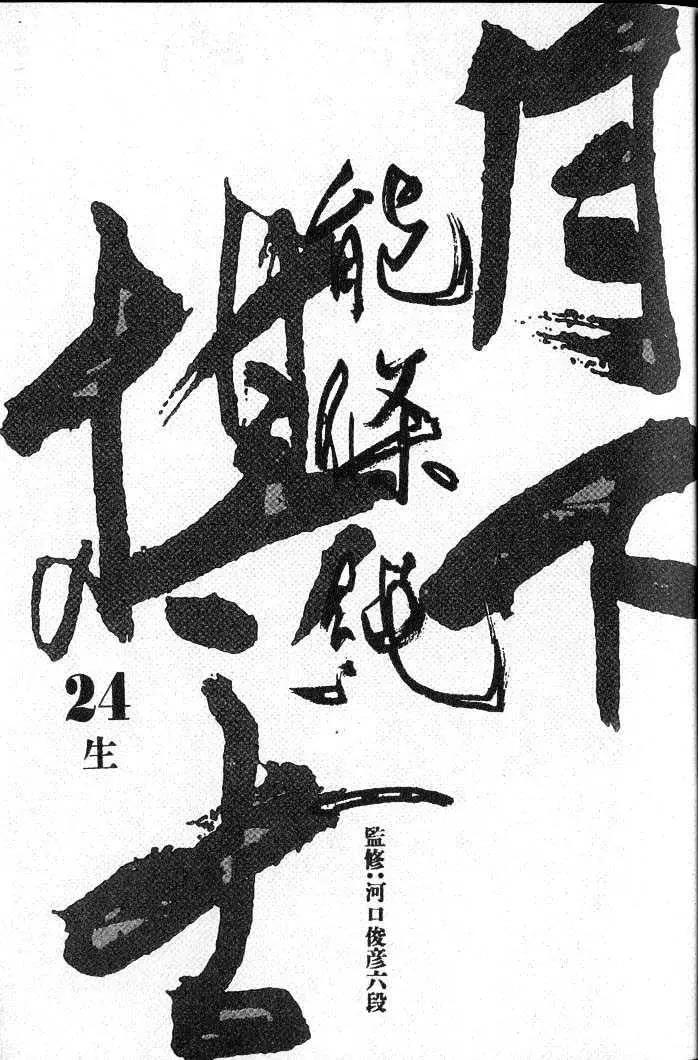 月下
棋士
能條純一
監修：河口俊彦六段
24
生